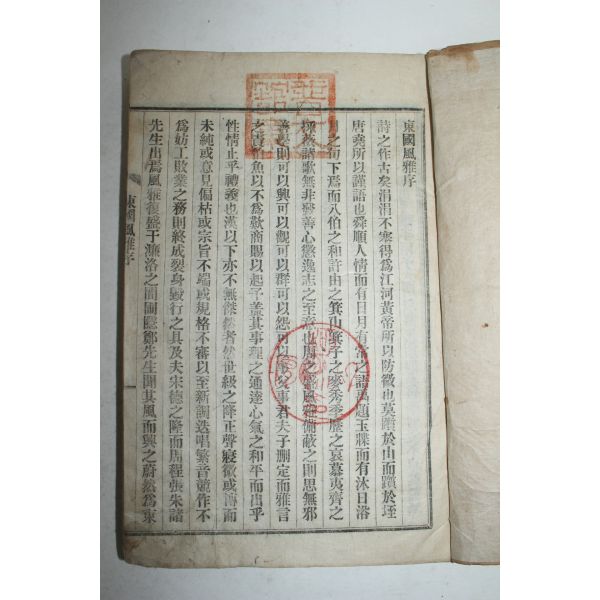 東國風雅序
詩之作古矣涓涓不塞得爲江河黃帝所以防微也莫躓於山而躓於垤
唐堯所以謹語也舜順人情而有日月有常之謠禹題玉牒而有沐日浴
月之句下爲而八伯之和許由之箕山箕子之麥秀季歷之哀慕夷齊之
採薇謌歌無非發善心懲逸志之至意也周之風雅備蔽之則思無邪
善學則可以興可以觀可以群可以怨可以事父事君夫子刪定而雅言
之責鯉魚以不爲歎商賜以起予盖其事理之通達心氣之和平而出乎
性情止乎禮義也漢以下亦不無傑然者然世級之降正聲寢微或傳而
未純或意見偏枯或宗旨不端或規格不審以至新調迭唱繁音競作不
爲妨工敗業之務則終成裂身毀行之具及夫宋德之隆而周程張朱諸
先生出焉風雅復盛于濂洛之間圃隱鄭先生聞其風而興之蔚然爲東
東國風雅序